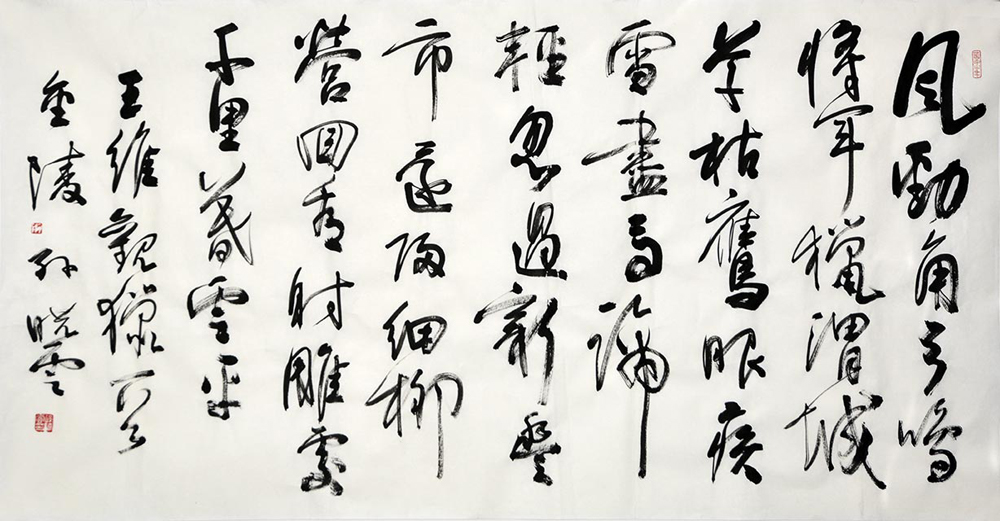 風勁角弓鳴
將軍獵渭城
草枯鷹眼疾
雪盡馬蹄
輕忽過新豐
市還歸細柳
營回看射雕處
千里暮雲平
王維觀獵
金陵孫曉雲